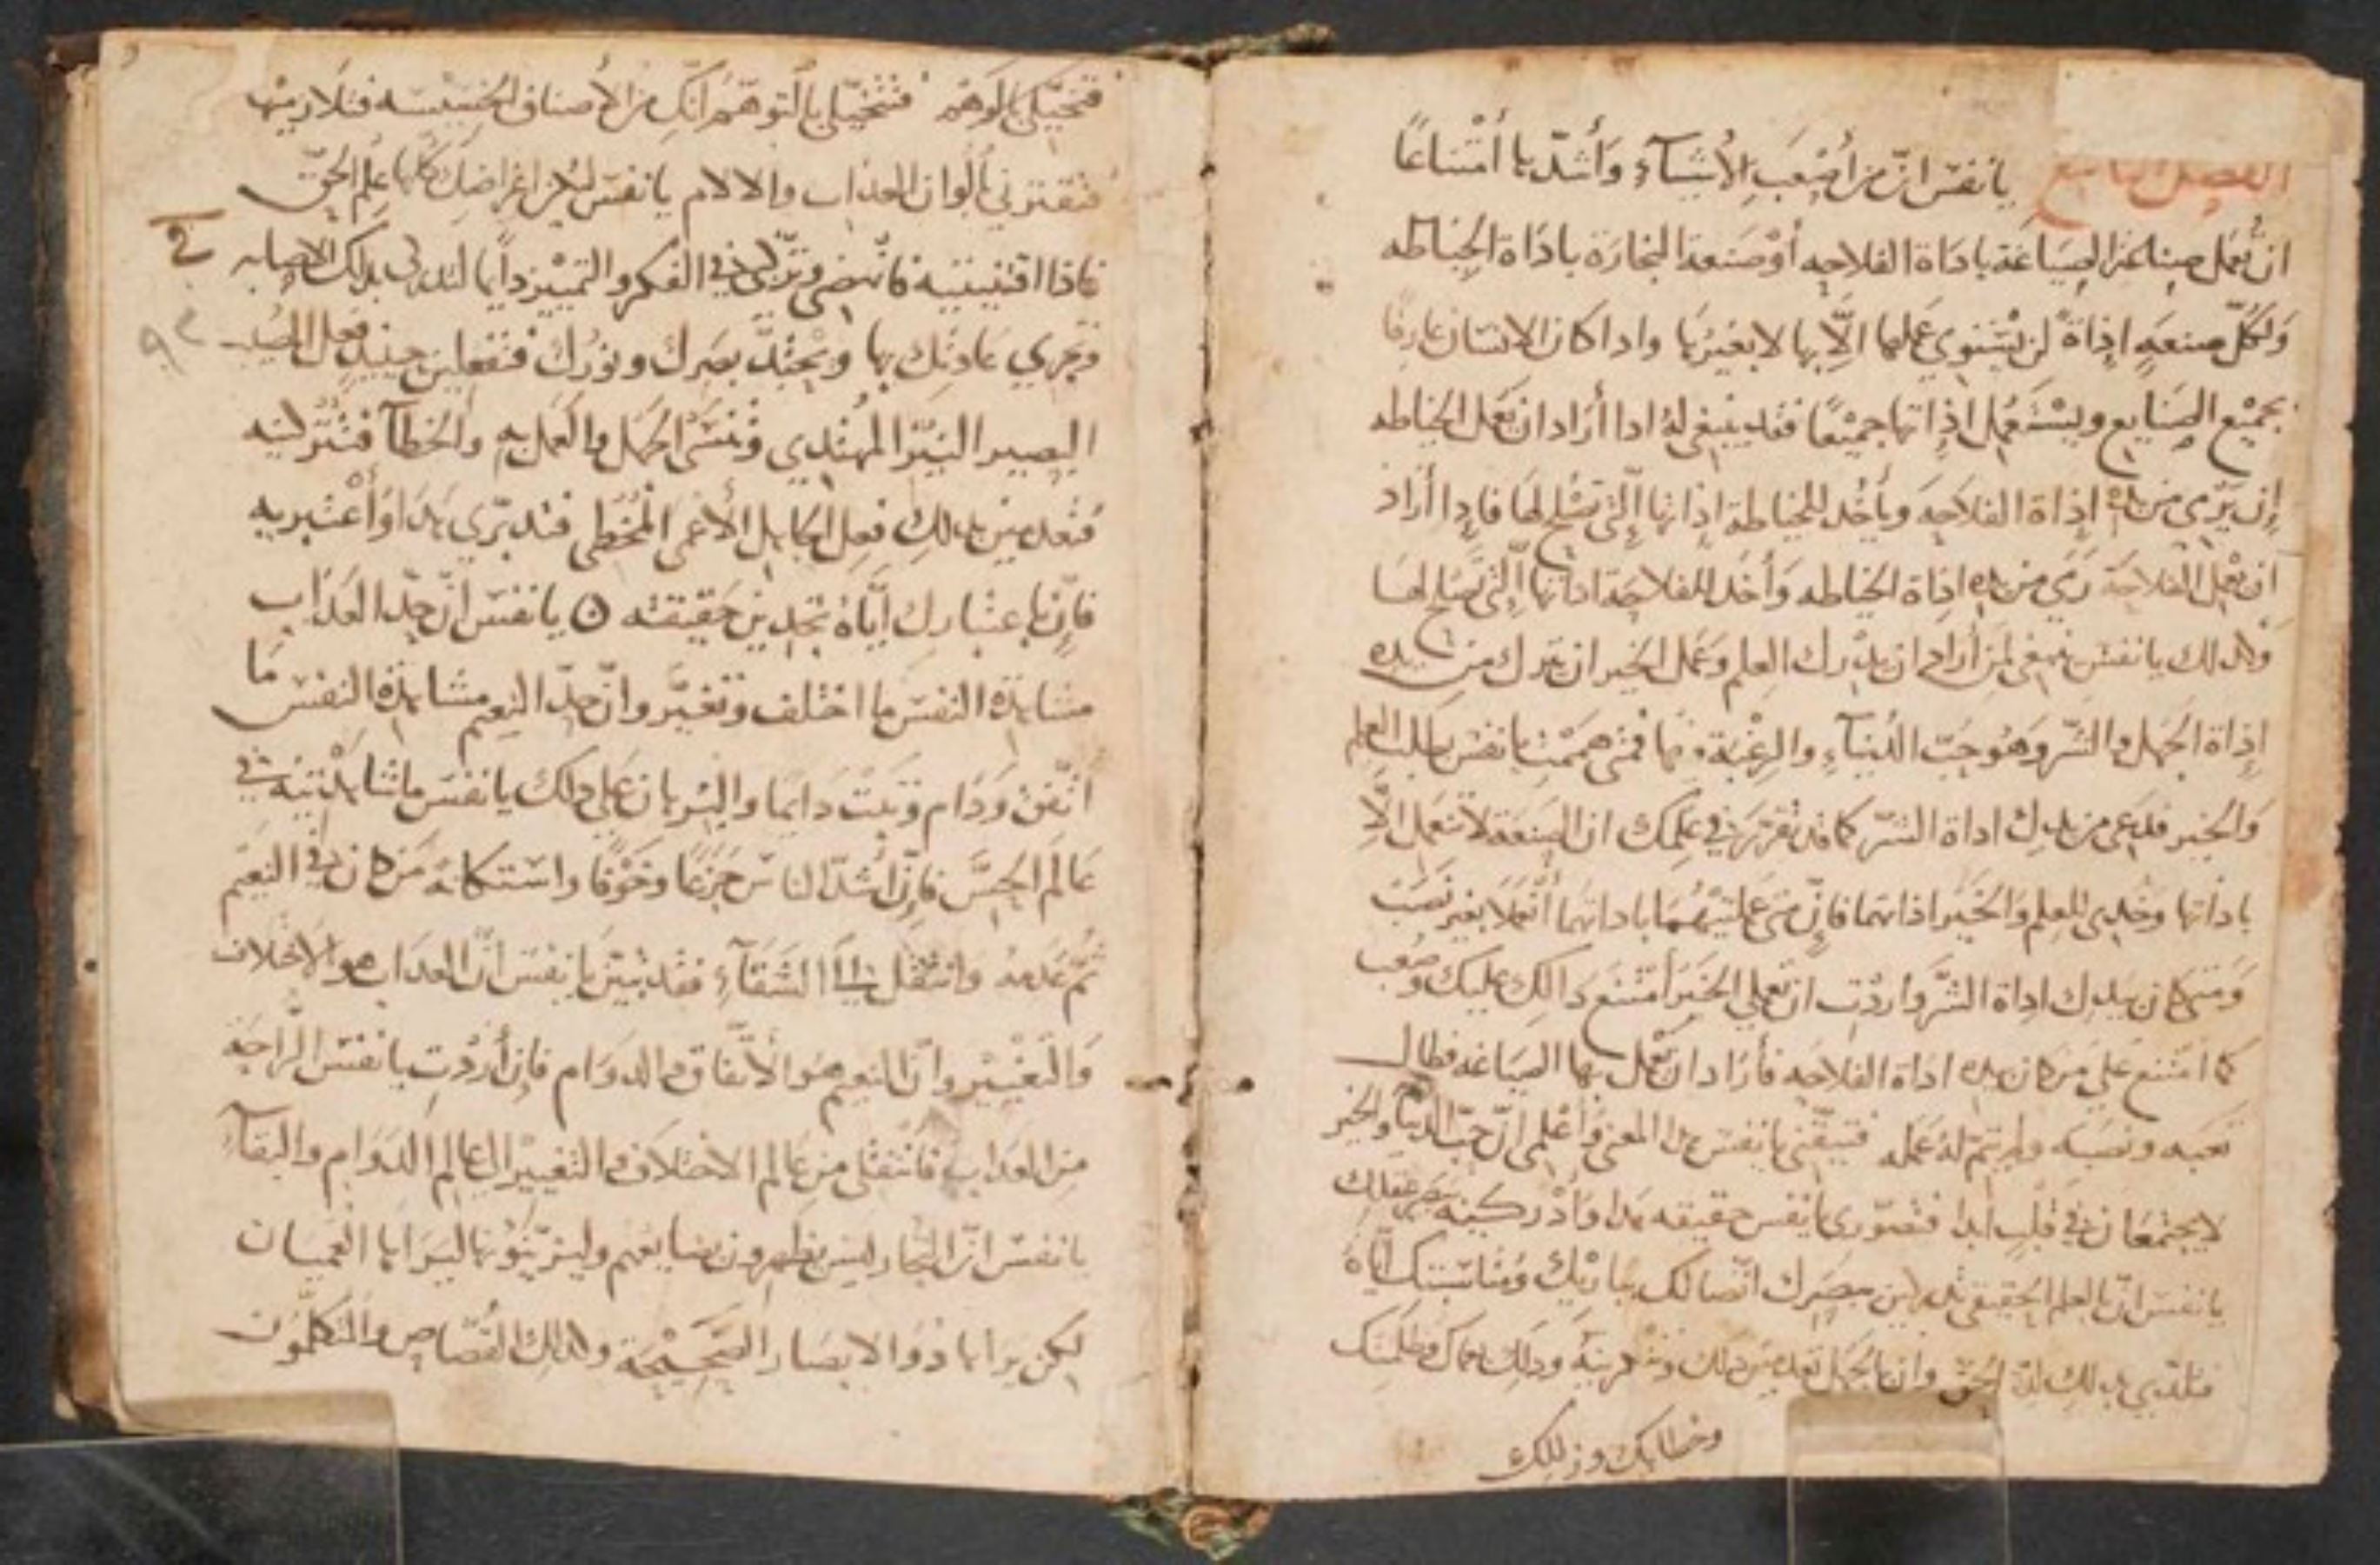 الفصل التاسع يا نفس انّ من أصْعَبِ الأشيآءِ وَأشدّها أمْتناعًا
ان تُعمل صناعَة الصِيَاغَة باداة الفلاحه أوْ صَنعة النجارَة باداة الخِيَاطه
وَلكلّ صنعَهٍ اداةً لن يَسْتَوي عَملها الّا بها لا بغيرها واداكان الانسان عارفًا
بجميْع الصَنايع ويَسْتَعْمِل اداتها جميْعًا فقد ينبغي لهُ ادا أرَاد ان يعَمل الخياطه
ان يَرْمي من يده اداة الفلاحَه ويأخُد للخياطة اداتها الّتي تصْلح لهَا فادا أرَاد
ان يعْمل الفلاحَة رَمي من يده اداة الخياطه وَأخَد للفلاحَة اداتها الّتي تصلح لهَا
وَكدلك يا نفس ينبغي لمن أرَاد ان يدْرك العِلم وَعَمل الخير ان يترك من يده
اداة الجَهل والشّر وَهُو حبّ الدُنيآء والرغْبَة فيها فمتى هَممْتِ يا نفس بطلب العلم
وَالخير فدعي من يدك اداة الشّر كما قد تقرّر في عِلمك ان الصنعَة لا تعمل الّا
باداتها وَخُدي للعِلم وَالخَير اداتهما فانّ متى عَملتيْهُمَا باداتهما أنعَملا بغير نصَب
وَمتى كان بيدك اداة الشَّر وأردْتِ ان تعملي الخَير أمْتنع دالك عليك وصَعب
كما امتنع عَلي من كان بيده اداة الفلاحه فأرَاد ان يعْمل بها الصِيَاغه فطال
تعَبه ونصَبه ولم يتمّ لهُ عَمله فتيقّني يا نفس هدا المعنى وَأعْلمي انّ حبّ الدنيا والخير
لا يجتمعَان في قلبٍ أبدا فتصَوّري يا نفس حقيقه هَدا وَأدْركيه ببصَر عقلك
يا نفس انّ بالعلم الحقيقي تدركين ببصَرك اتّصالك بباريك وَمناسَبتك ايّاهُ
فتلتدّي بدلك لدّة الحَقّ وان بالجهل تعدمين دلك ودلك لعماك وظلمتك
وخطايك وزللك
فتخيّلي بالوَهْم فتتخيّلي بالتوهّم أنّكِ من الأصناف الخسِيْسَه
فتقترني بألوان العداب والالام يا نفس ليكن اغراضِكِ كلّها عِلم الحَقّ
فادا اقتنيتيه فانهضي وترّقي في الفكر والتميْيز دايمًا لتدركي بدلك الاصابه في
وَتجري عَادتك بها ويحْتدّ بصَرك ونورُك فتفعلين حينيدٍ فعل
البصير النَيّر المهْتدي وَتنسَى الجَهل والعَمل به وَالخطآ
فتعدمين بدلك فعل الجاهل الأعْمى المخْطي فتدبّري هَدا وَأعْتبريه
فانّ باعتبارك ايّاهُ تجدين حَقيقته ٥ يا نفس انّ حدّ العَدَاب
مشاهدة النفس ما اختلف وَتغيَّر وانّ حدّ النعيم مشاهدة النفس مَا
اتّفق وَدَام وَثبَت دَايمَا والبُرهان عَلي دلك يا نفس ما تشاهدْتيه في
عَالم الحِسّ فانّ أشدّ الناس جَزعًا وَخوْفا واستكانة مَن كان في النعِيم
ثمّ عدمهُ وانتقل الي الشقآءِ فقد تبيّن يا نفس أنّ العدَاب هو الاختلاف
وَالتغْييْر وانّ النعيم هُو الأتّفاق والدوَام فان أردْتِ يا نفس الرّاحَة
مِن العدَاب فانتقلي من عَالم الاختلاف والتغيير الي عَالم الدوَام والبقآءِ
يا نفس انّ التجّار ليس يظهرون بضايعهم وليزيّنُوْنها ليَرَاها العميَان
لكن يراها ذوُا الابصَار الصَحِيْحَة وكدلك القُصّاص والمتكلّمُون